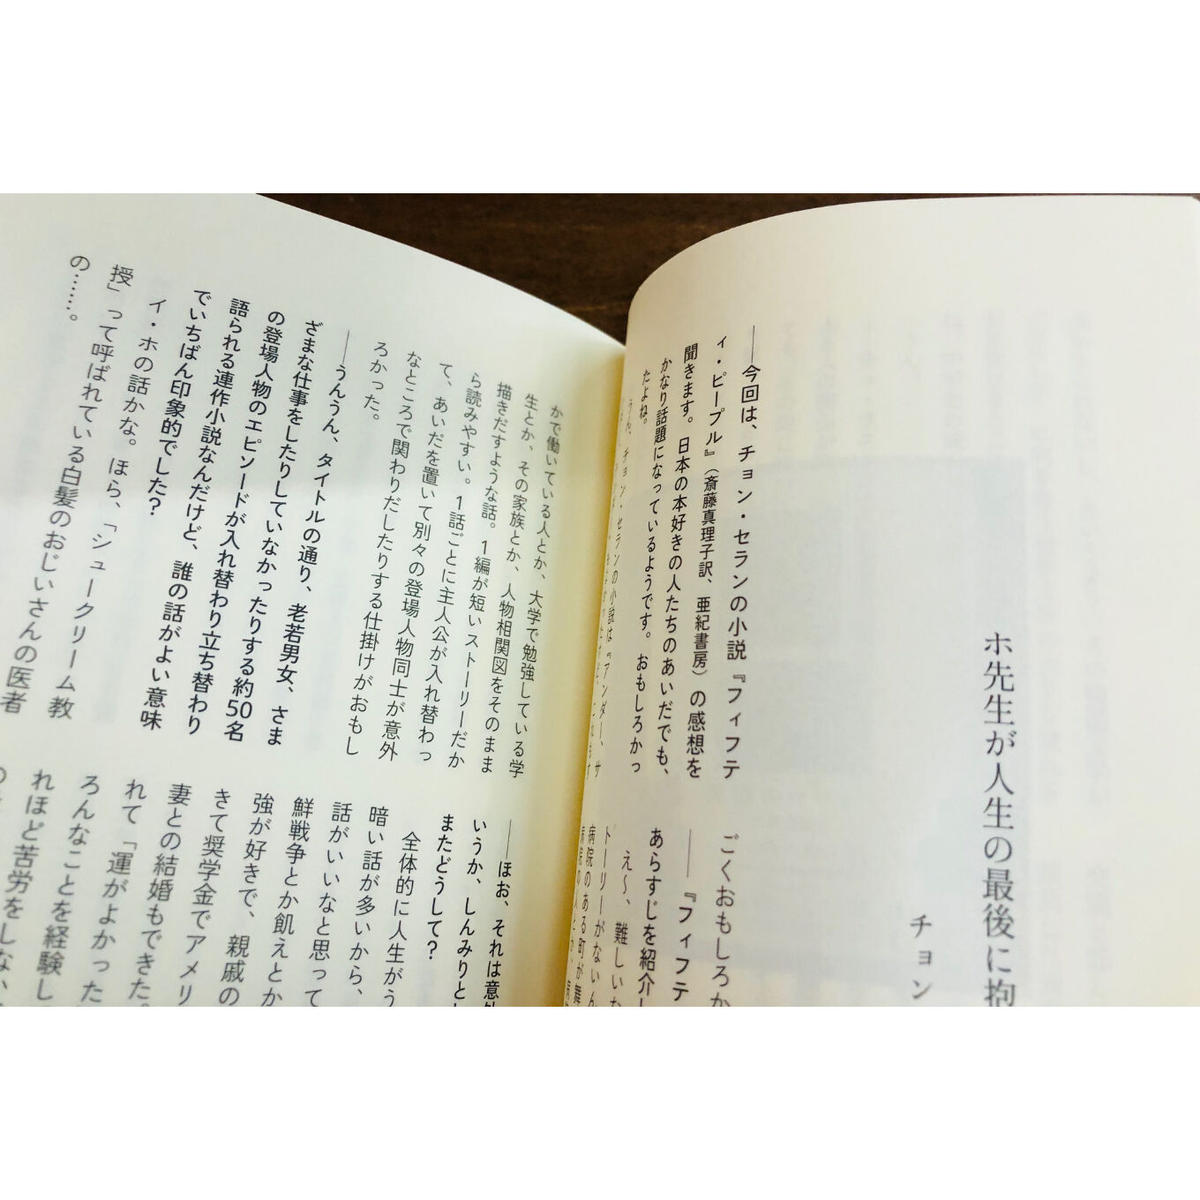 ホ先生が人生の最後に抱
チョン
――今回は、チョン・セランの小説『フィフテ
ィ・ピープル』（斎藤真理子訳、亜紀書房）の感想を
聞きます。日本の本好きの人たちのあいだでも、
かなり話題になっているようです。おもしろかっ
たよね。
うん、チョン・セランの小説は『アンダー、サ
ごくおもしろか
あらすじを紹介し
――『フィフテ
え〜、難しいな
トーリーがないん
病院のある町が舞
かで働いている人とか、大学で勉強している学
生とか、その家族とか、人物相関図をそのまま
描きだすような話。1編が短いストーリーだか
ら読みやすい。1話ごとに主人公が入れ替わっ
て、あいだを置いて別々の登場人物同士が意外
なところで関わりだしたりする仕掛けがおもし
ろかった。
――うんうん、タイトルの通り、老若男女、さま
ざまな仕事をしたりしていなかったりする約50名
の登場人物のエピソードが入れ替わり立ち替わり
語られる連作小説なんだけど、誰の話がよい意味
でいちばん印象的でした？
イ・ホの話かな。ほら、「シュークリーム教
授」って呼ばれている白髪のおじいさんの医者
の……。
――ほお、それは意外
いうか、しんみりとし
またどうして？
全体的に人生がう
暗い話が多いから、
話がいいなと思って
鮮戦争とか飢えとか
強が好きで、親戚の
きて奨学金でアメリ
妻との結婚もできた。
れて「運がよかった
ろんなことを経験し
れほど苦労をしない